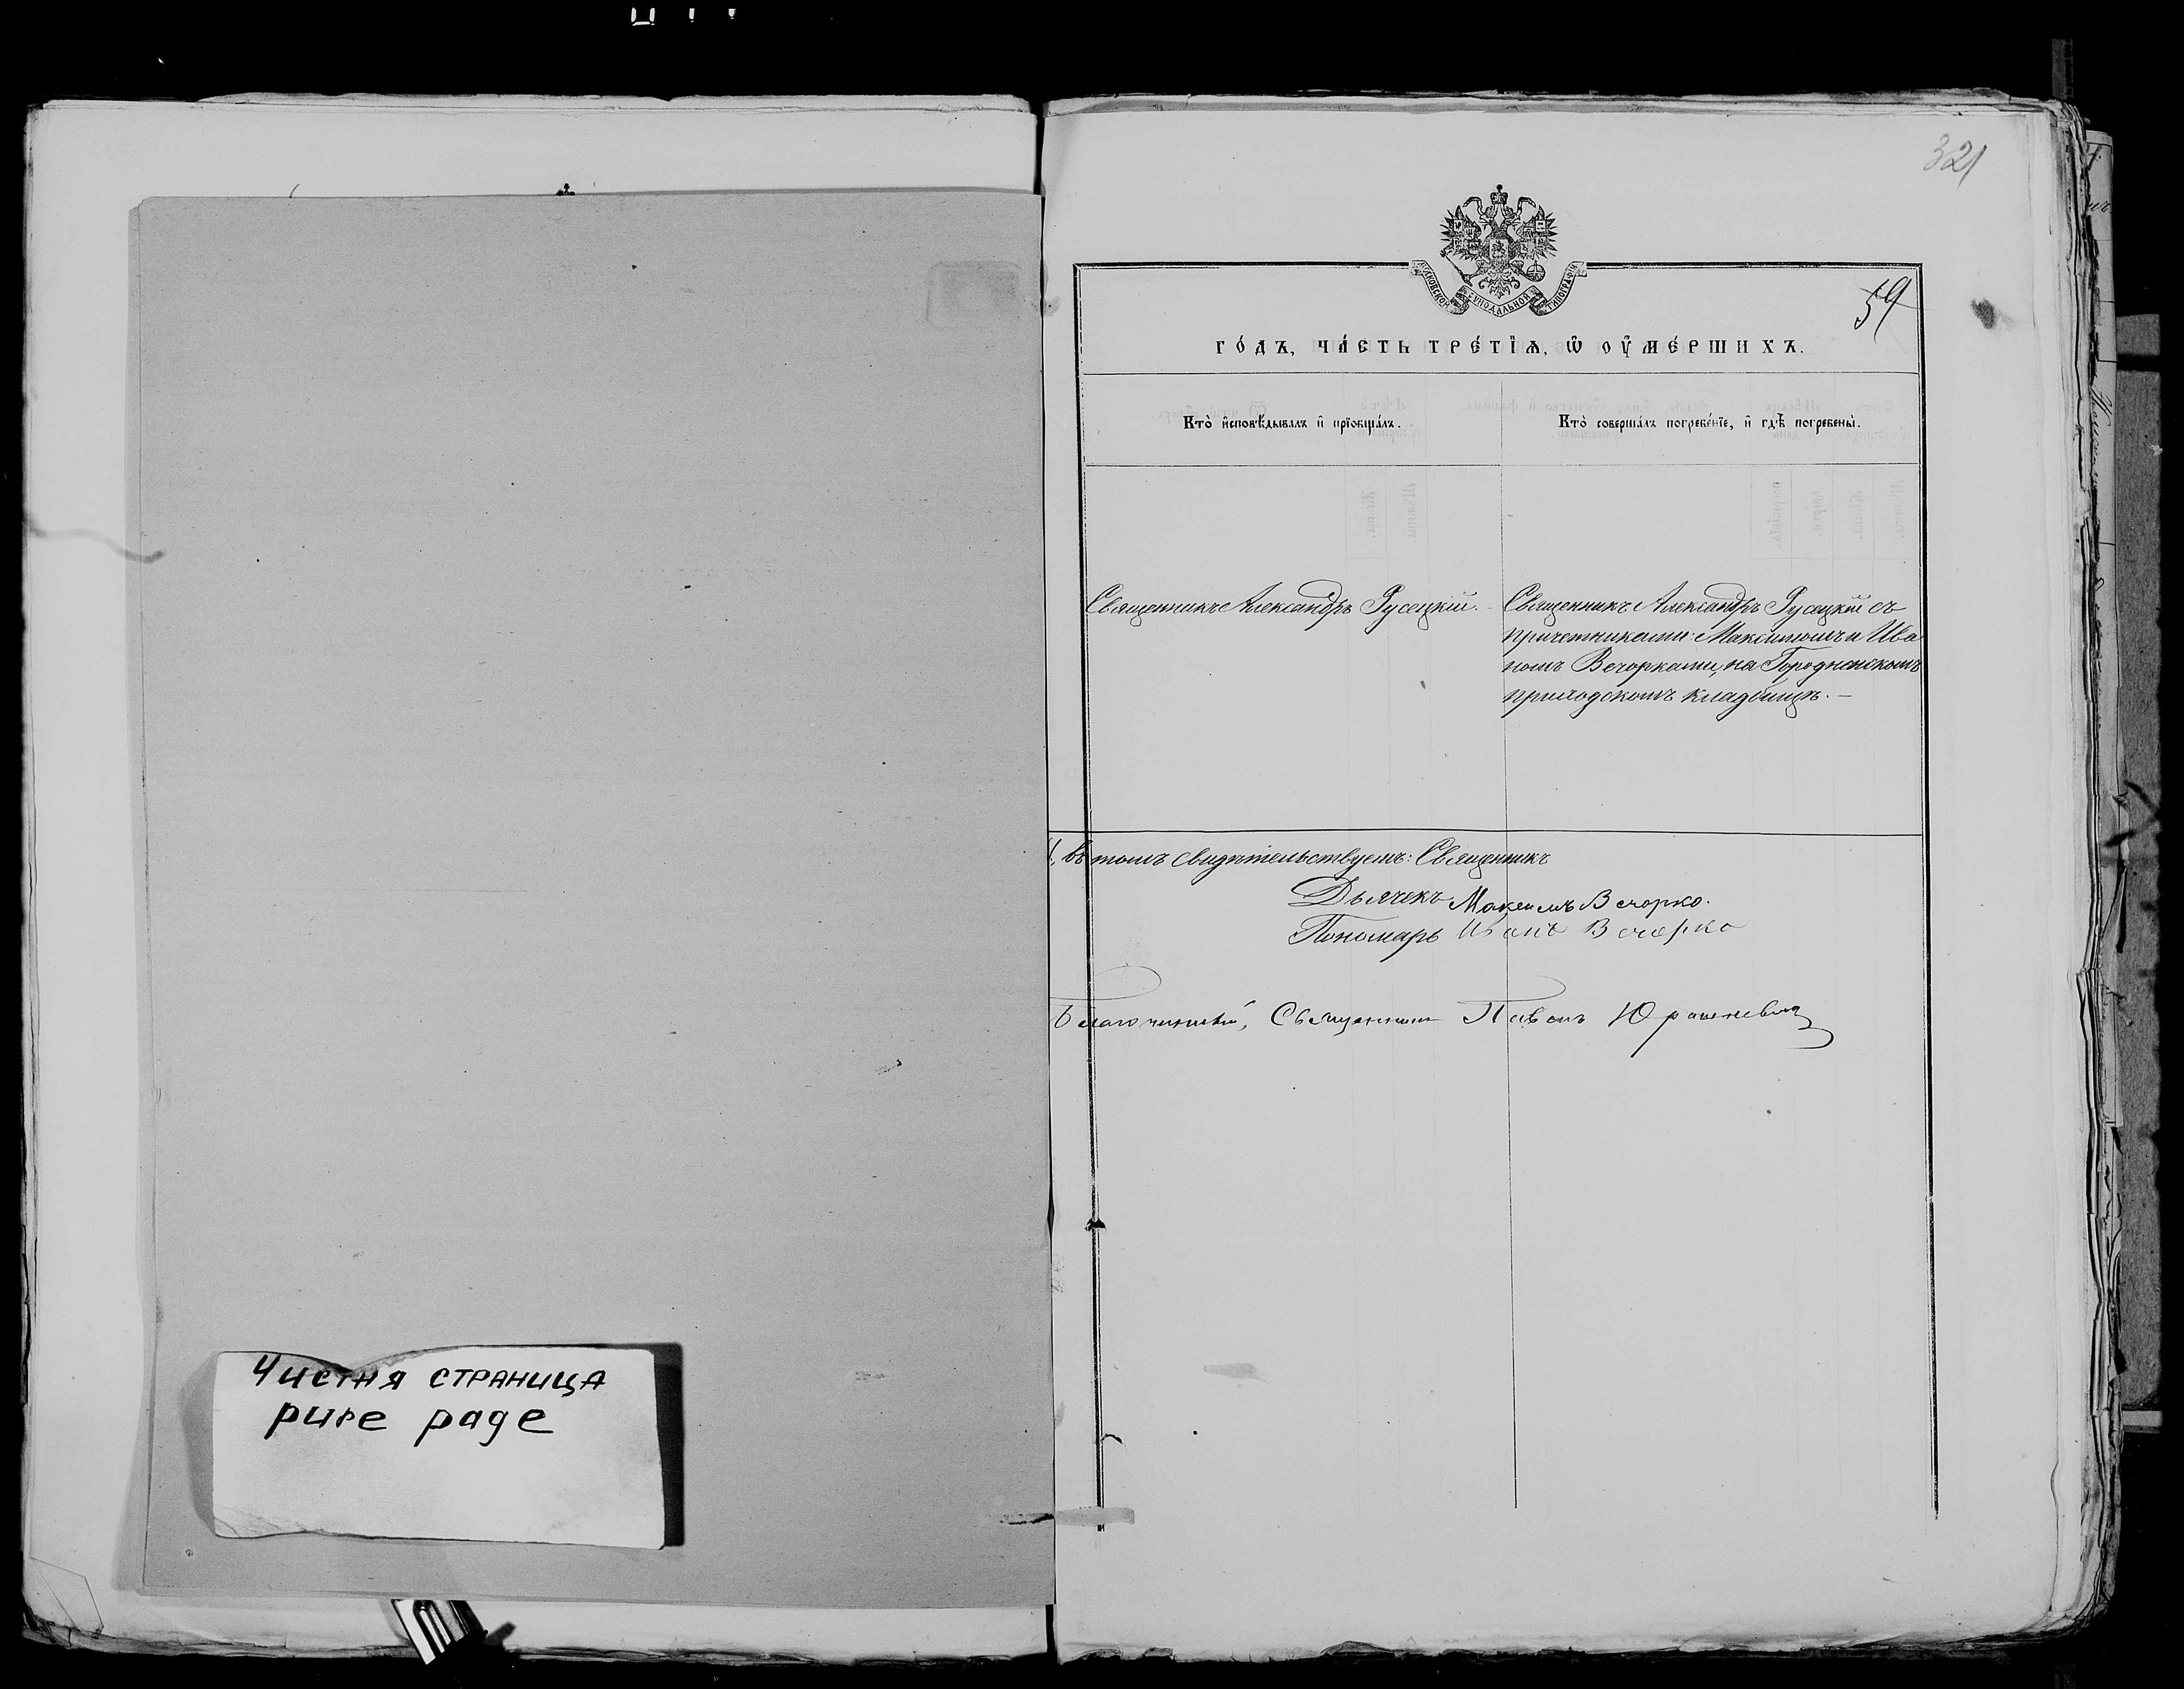 321
МОСКОВСКОЙ СѴНОДАЛЬНОЙ ТИПОГРАФІИ
59
ГО́ДЪ, ЧА́СТЬ ТРЕ́ТЇѦ, Ѡ҆ ОУ҆МЕ́РШИХЪ.
Кто̀ и҆сповѣ́дывалъ и҆ прїобща́лъ.
Кто̀ соверша́лъ погребе́нїе, и҆ гдѣ̀ погребены̀.
Священникъ Александръ Русецкій.
Священникъ Александръ Русецкій съ
причетниками: Максимомъ и Ива
номъ Вечорками, на Городненскомъ
приходскомъ кладбищѣ. —
въ томъ свидѣтельствуемъ: Священникъ
Дьячекъ Максимъ Вечорко.
Пономарь Иванъ Вечорко
Благочинный, Священникъ Павелъ Юрашкевичъ
Чистая страница
pure page